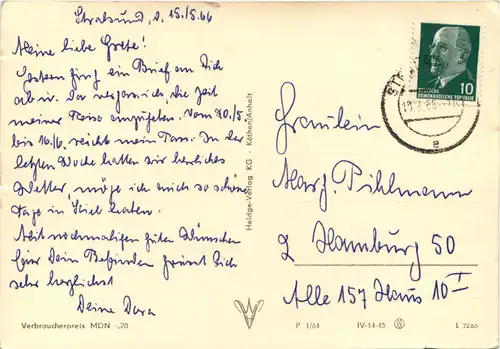 Stralsund, d. 15./5.66
Meine liebe Grete!
Gestern ging ein Brief an Dich
ab. Da vergass ich die Zeit
meiner Reise anzugeben. Vom 20./5.
bis 16./6. reicht mein Pass. In der
letzten Woche hatten wir herrliches
Wetter, möge ich auch so schöne
Tage in Kiel haben.
Mit nochmaligen guten Wünschen
für Dein Befinden grüsst Dich
sehr herzlichst
Deine Dora
Verbraucherpreis MDN -,20
Heldge-Verlag KG - Köthen/Anhalt
DEUTSCHE
DEMOKRATISCHE REPUBLIK
10
Fräulein
Marg. Pihlmann
2 Hamburg 50
Alle 157 Haus 10 I
P 1/64 IV-14-45 L 7266